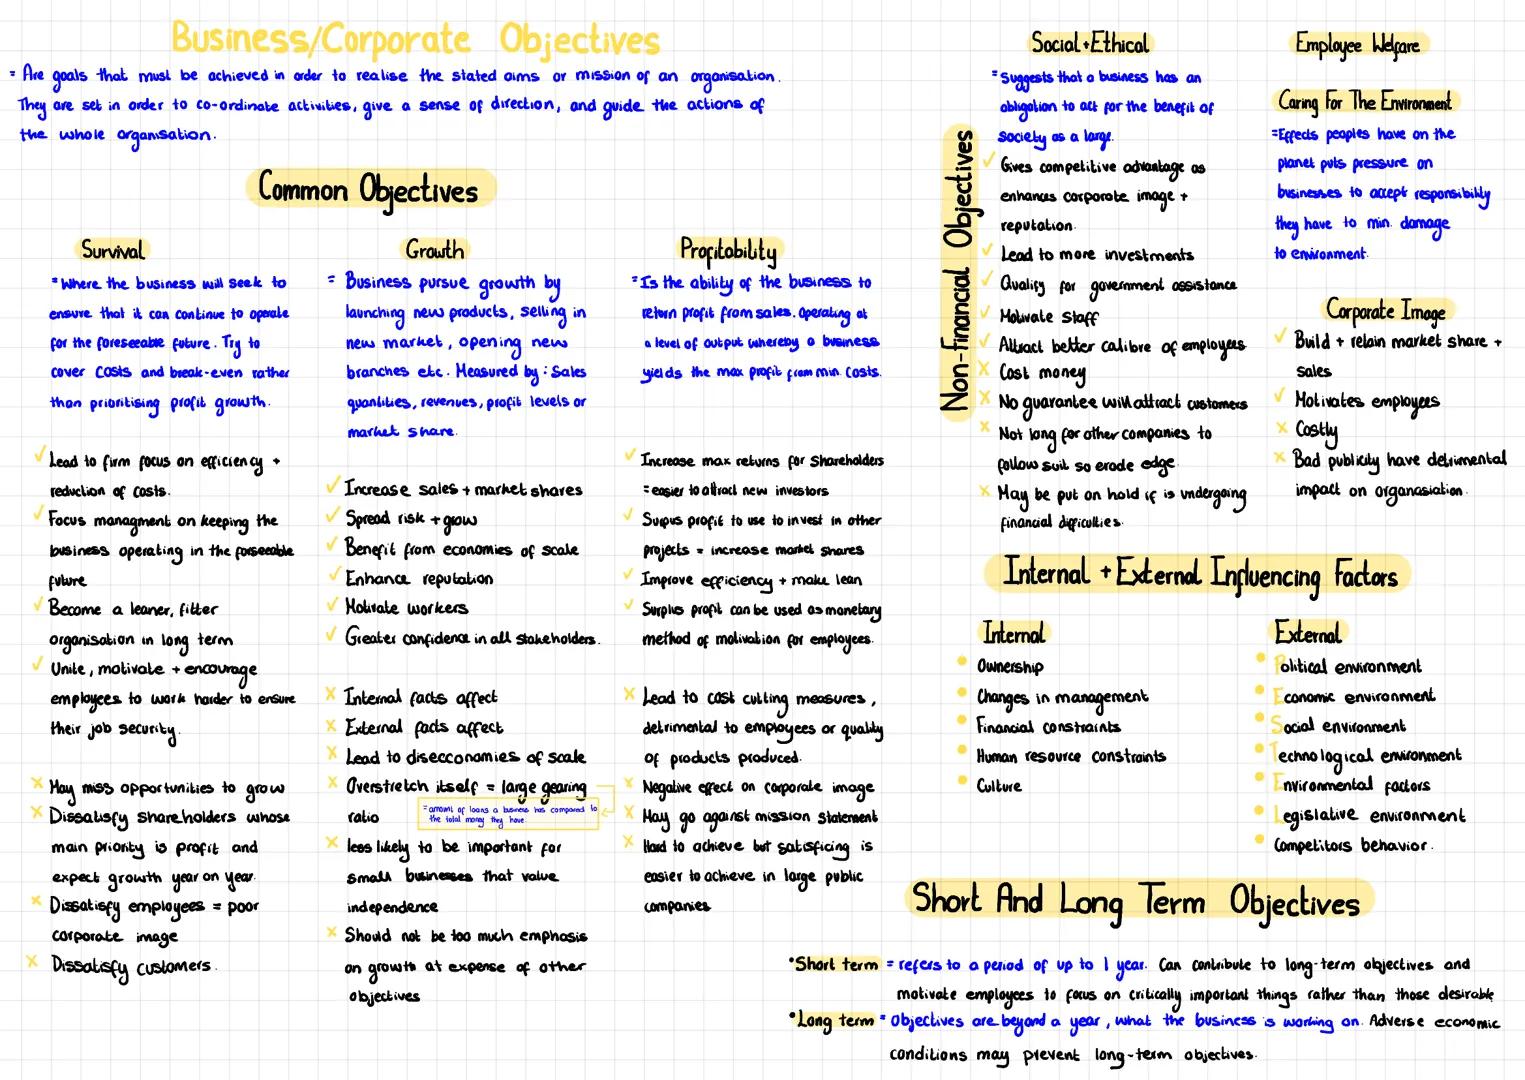 Business/Corporate Objectives
= Are goals that must be achieved in order to realise the stated aims or mission of an organisation.
They are set in order to co-ordinate activities, give a sense of direction, and guide the actions of
the whole organisation.
Common Objectives
Survival
= Where the business will seek to
ensure that it can continue to operate
for the foreseeable future. Try to
cover costs and break-even rather
than prioritising profit growth.
✓ Lead to firm focus on efficiency +
reduction of costs.
✓ Focus managment on keeping the
business operating in the forseeable
future
✓ Become a leaner, fitter
organisation in long term
✓ Unite, motivate + encourage
employees to work harder to ensure
their job security.
x May miss opportunities to grow
x Dissatisfy shareholders whose
main priority is profit and
expect growth year on year.
x Dissatisfy employees = poor
corporate image
x Dissatisfy customers.
Growth
= Business pursue growth by
launching new products, selling in
new market, opening new
branches etc. Measured by: Sales
quantities, revenues, profit levels or
market share.
✓ Increase sales + market shares
✓ Spread risk + grow
✓ Benefit from economies of scale
✓ Enhance reputation
✓ Motivate workers
✓ Greater confidence in all stakeholders.
x Internal facts affect
x External facts affect
x Lead to diseconomies of scale
x Overstretch itself = large gearing
ratio
= amount of loans a business has compared to
the total money they have
x less likely to be important for
small businesses that value
independence
x Should not be too much emphasis
on growth at expense of other
objectives
Profitability
= Is the ability of the business to
return profit from sales. Operating at
a level of output whereby a business
yields the max profit from min. costs.
✓ Increase max returns for shareholders
= easier to attract new investors
✓ Surpus profit to use to invest in other
projects = increase market shares
✓ Improve efficiency + make lean
✓ Surplus profit can be used as monetary
method of motivation for employees.
x Lead to cost cutting measures,
detrimental to employees or quality
of products produced.
x Negative effect on corporate image
x May go against mission statement
x Hard to achieve but satisficing is
easier to achieve in large public
companies
Non-Financial Objectives
Social + Ethical
= Suggests that a business has an
obligation to act for the benefit of
society as a large.
✓ Gives competitive advantage as
enhances corporate image +
reputation.
✓ Lead to more investments
✓ Qualify for government assistance
✓ Motivate staff
✓ Attract better calibre of employees
x Cost money
x No guarantee will attract customers
x Not long for other companies to
follow suit so erode edge.
x May be put on hold if is undergoing
financial difficulties.
Employee Welfare
Caring For The Environment
= Effects peoples have on the
planet puts pressure on
businesses to accept responsibility
they have to min. damage
to environment.
Corporate Image
✓ Build + retain market share +
sales
✓ Motivates employees
x Costly
x Bad publicity have detrimental
impact on organasiation.
Internal + External Influencing Factors
Internal
• Ownership
• Changes in management
• Financial constraints
• Human resource constraints
• Culture
External
• Political environment
• Economic environment
• Social environment
• Technological environment
• Environmental factors
• Legislative environment
• Competitors behavior.
Short And Long Term Objectives
• Short term = refers to a period of up to 1 year. Can contribute to long-term objectives and
motivate employees to focus on critically important things rather than those desirable
• Long term = Objectives are beyond a year, what the business is working on. Adverse economic
conditions may prevent long-term objectives.